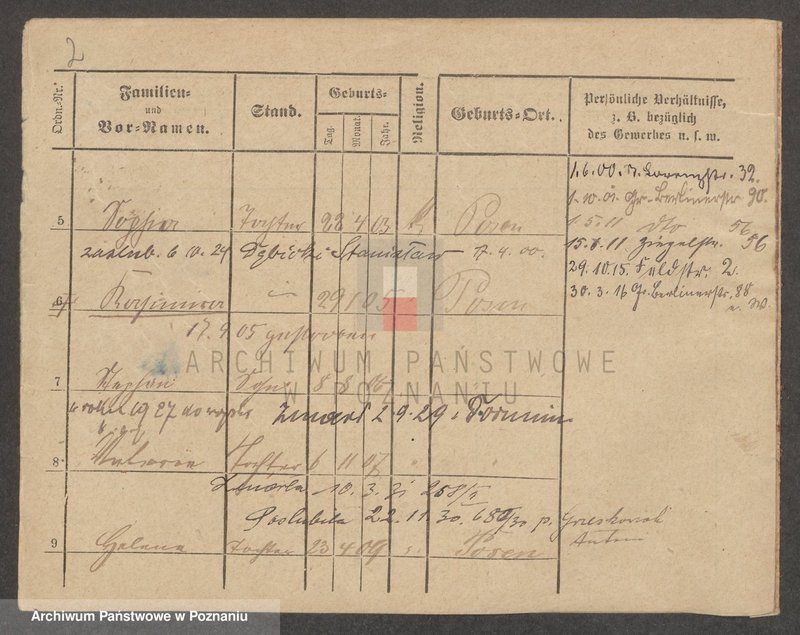 2
Ordn.-Nr.
Familien-
und
Vor-Namen.
Stand.
Geburts-
Tag.
Monat.
Jahr.
Religion.
Geburts-Ort.
Persönliche Verhältnisse,
z. B. bezüglich
des Gewerbes u. s. w.
1.6.00. Lorenzstr. 32.
Gr. Berlinerstr. 90.
1.5.11 dto 56
15.8.11 Ziegelstr. 56
29.10.15. Feldstr. 2.
30.3.16 Gr. Berlinerstr. 88
5 Sophie Tochter 28 4 03 Posen
zaślub. 6 10. 24 Dębicki Stanisław 17. 4. 00.
6 Kasimira 29 1 05 Posen
17. 9 05 gestorben
7 Stephan 8 8 06
1927 do Zmarł 2.9.29
8 Tochter 6 11 07
Zmarła 10. 3. 31 258/I
Poślubiła 22. 11. 30. 680/30 p.
9 Helena Tochter 23 4 09 Posen
ARCHIWUM PAŃSTWOWE
W POZNANIU
Archiwum Państwowe w Poznaniu